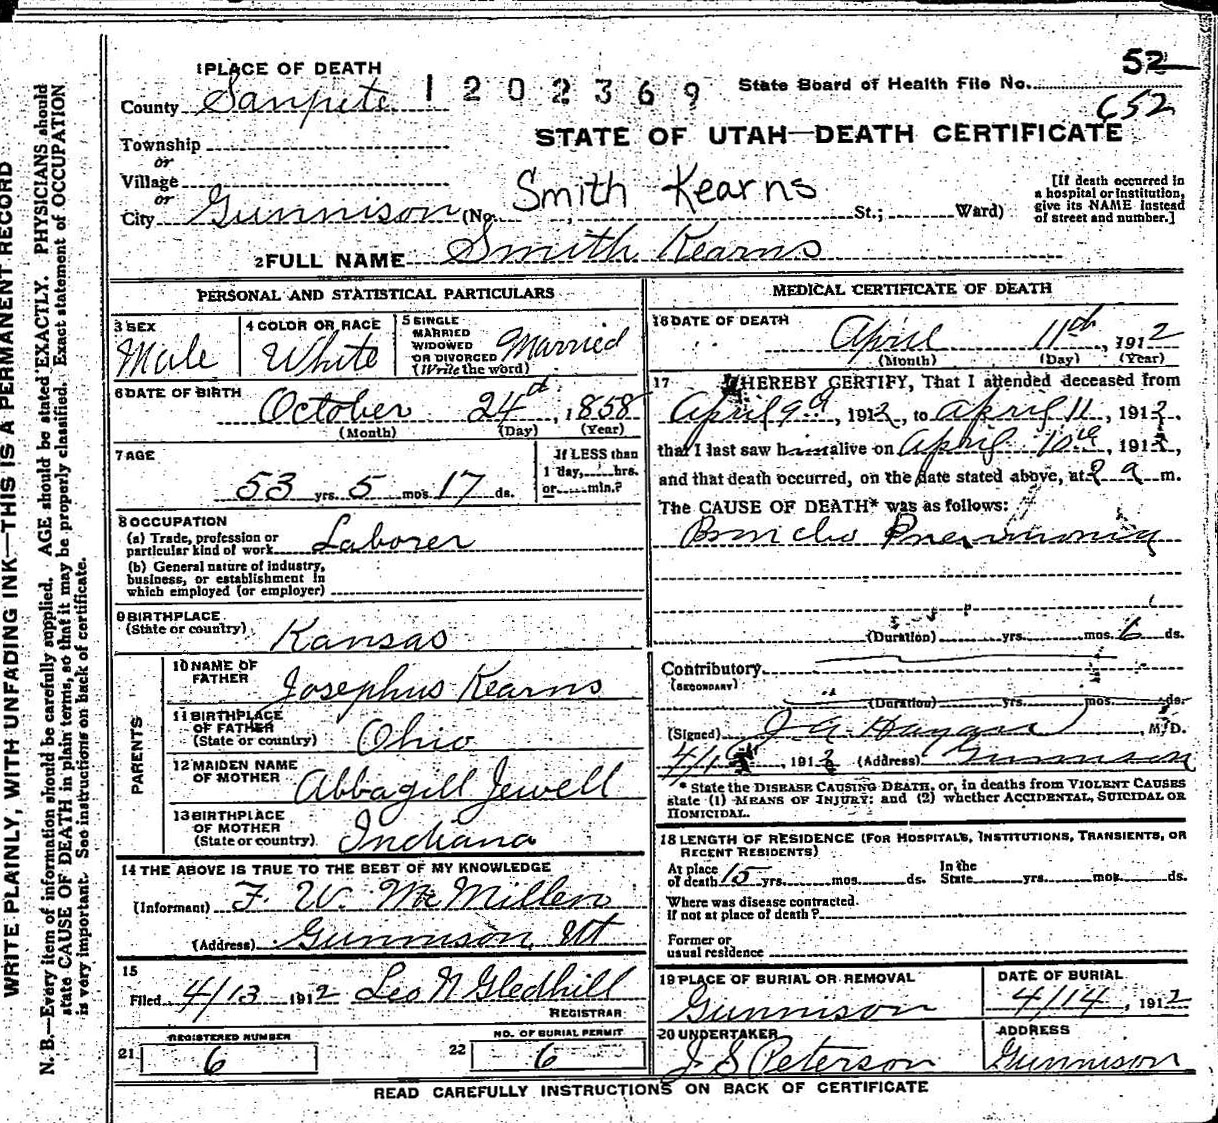 WRITE PLAINLY, WITH UNFADING INK—THIS IS A PERMANENT RECORD
N. B.—Every item of information should be carefully supplied. AGE should be stated EXACTLY. PHYSICIANS should
state CAUSE OF DEATH in plain terms, so that it may be properly classified. Exact statement of OCCUPATION
is very important. See instructions on back of certificate.
1 PLACE OF DEATH
County Sanpete
1202369
State Board of Health File No. 52
652
STATE OF UTAH—DEATH CERTIFICATE
Township
or
Village
or
City Gunnison (No. St.; Ward)
Smith Kearns
[If death occurred in
a hospital or institution,
give its NAME instead
of street and number.]
2 FULL NAME Smith Kearns
PERSONAL AND STATISTICAL PARTICULARS
3 SEX
Male
4 COLOR OR RACE
White
5 SINGLE
MARRIED
WIDOWED
OR DIVORCED
(Write the word)
Married
6 DATE OF BIRTH
October 24th, 1858
(Month) (Day) (Year)
7 AGE
53 yrs. 5 mos. 17 ds.
If LESS than
1 day, hrs.
or min.?
8 OCCUPATION
(a) Trade, profession or
particular kind of work Laborer
(b) General nature of industry,
business, or establishment in
which employed (or employer)
9 BIRTHPLACE
(State or country) Kansas
PARENTS
10 NAME OF
FATHER Josephus Kearns
11 BIRTHPLACE
OF FATHER
(State or country) Ohio
12 MAIDEN NAME
OF MOTHER Abbagill Jewell
13 BIRTHPLACE
OF MOTHER
(State or country) Indiana
14 THE ABOVE IS TRUE TO THE BEST OF MY KNOWLEDGE
(Informant) F. W. McMillen
(Address) Gunnison, Ut
15
Filed 4/13 1912 Leo N Gledhill
REGISTRAR
REGISTERED NUMBER
21 6
NO. OF BURIAL PERMIT
22 6
MEDICAL CERTIFICATE OF DEATH
16 DATE OF DEATH
April 11th, 1912
(Month) (Day) (Year)
17 I HEREBY CERTIFY, That I attended deceased from
April 9th, 1912, to April 11, 1912,
that I last saw him alive on April 10th, 1912,
and that death occurred, on the date stated above, at 2 a m.
The CAUSE OF DEATH* was as follows:
Broncho Pneumonia
(Duration) yrs. mos. 6 ds.
Contributory
(SECONDARY)
(Duration) yrs. mos. ds.
(Signed) J. A. Hagan, M. D.
1912 (Address) Gunnison
* State the DISEASE CAUSING DEATH, or, in deaths from VIOLENT CAUSES
state (1) MEANS OF INJURY; and (2) whether ACCIDENTAL, SUICIDAL OR
HOMICIDAL.
18 LENGTH OF RESIDENCE (FOR HOSPITALS, INSTITUTIONS, TRANSIENTS, OR
RECENT RESIDENTS)
At place
of death 15 yrs. mos. ds.
In the
State yrs. mos. ds.
Where was disease contracted.
If not at place of death?
Former or
usual residence
19 PLACE OF BURIAL OR REMOVAL
Gunnison
DATE OF BURIAL
4/14, 1912
20 UNDERTAKER
J. S Peterson
ADDRESS
Gunnison
READ CAREFULLY INSTRUCTIONS ON BACK OF CERTIFICATE